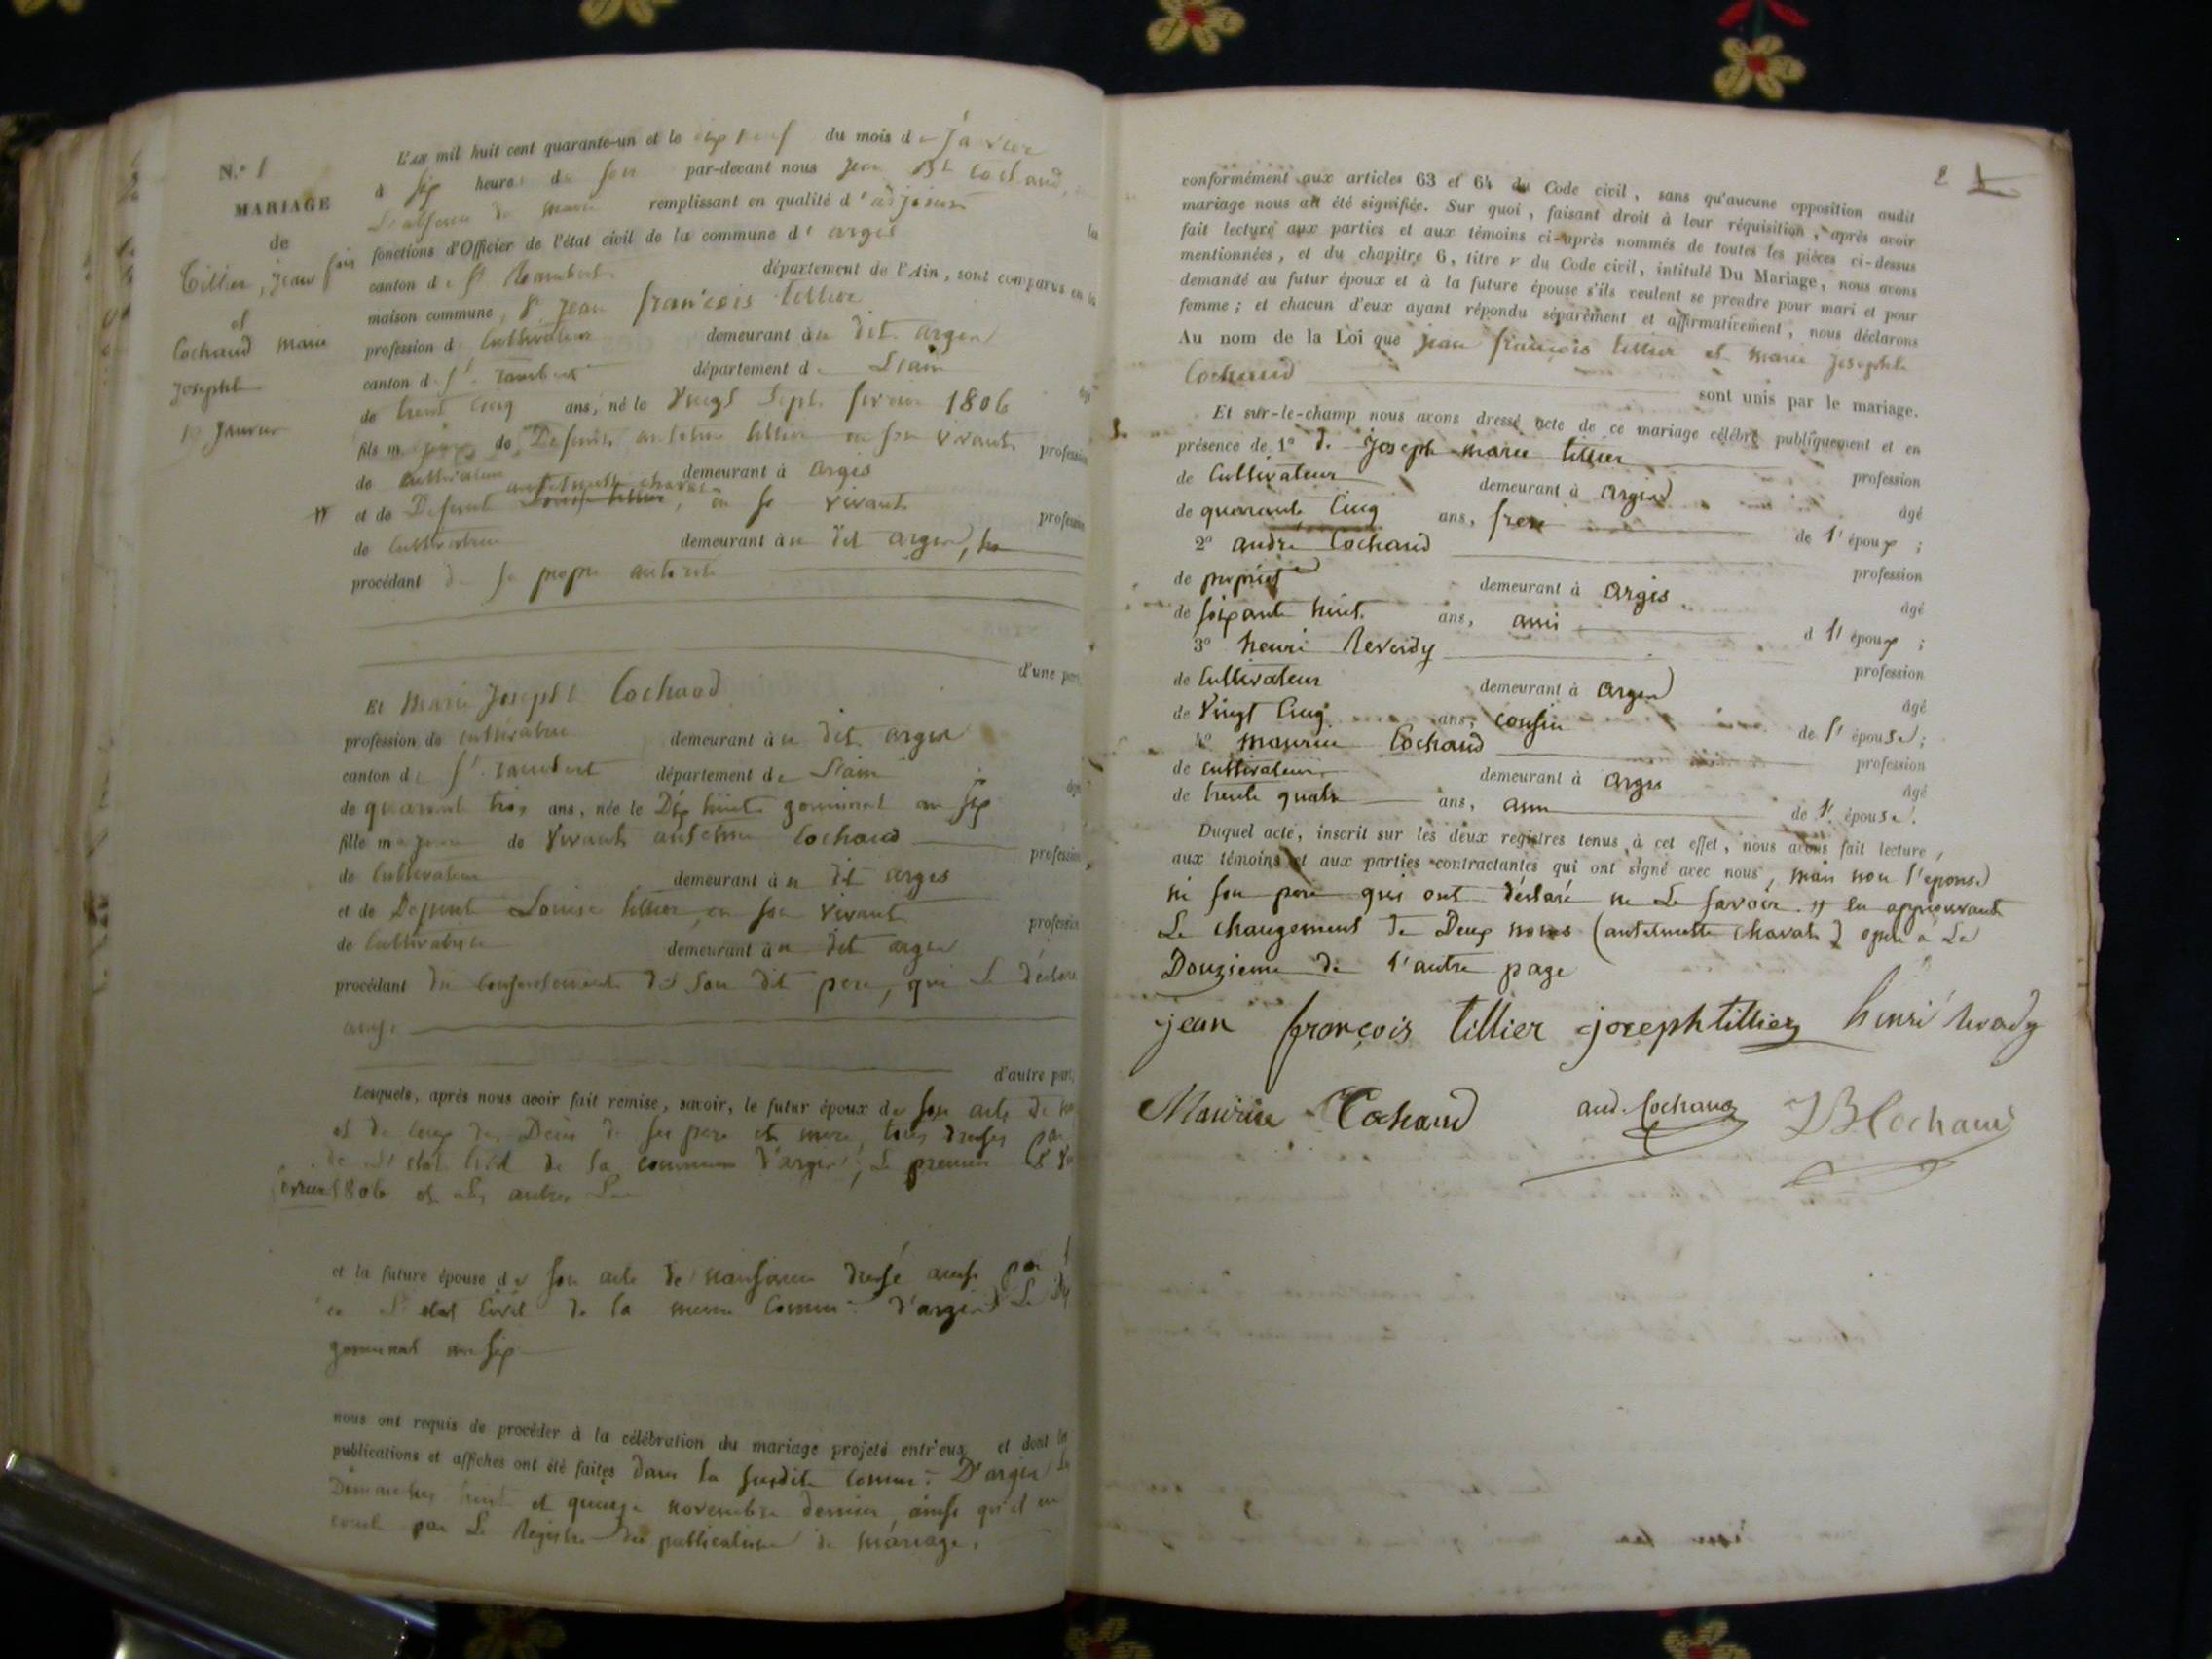 N.º 1
MARIAGE
de
Tillier, Jean fois
et
Cochaud marie
Josephte
19 Janvier
L'an mil huit cent quarante-un et le dix neuf du mois de Janvier
à six heures du soir par-devant nous Jean Bte Cochaud,
L'absence du maire remplissant en qualité d'adjoint les
fonctions d'Officier de l'état civil de la commune d'argis
canton de St Rambert département de l'Ain, sont comparus en la
maison commune, Sr Jean françois tillier
profession de Cultivateur demeurant au dit argis
canton de St. rambert département de L'ain âgé
de trent cinq ans, né le Vingt Sept fevrier 1806
fils majeur de Defunt antelme tillier en son vivant profession
de cultivateur demeurant à argis
antelmette chavat
et de Defunte Louise tillier, en so vivant profession
de Cultivatrice demeurant au dit argis,
procédant de sa propre autorité
d'une part,
Et Marie Josephte Cochaud
profession de cultivatrice demeurant au dit argis
canton de St. rambert département de L'ain âgée
de quarante trois ans, née le Dix huit germinal an six
fille majeure de Vivant antelme Cochaud profession
de Cultivateur demeurant au dit argis
et de Defunte Louise tillier, en son vivant profession
de Cultivatrice demeurant au dit argis
procédant du Consentement de Son dit pere, qui Le déclare
ainsi.
d'autre part,
Lesquels, après nous avoir fait remise, savoir, le futur époux de son acte de
et de Ceux des Deces de ses pere et mere, tous dressés par
de L'etat Civil de la commune d'argis, Le premier
fevrier 1806 et Les autres Le
et la future épouse de son acte de naissance dressé aussi par
de L'etat Civil de la meme Commune d'argis Le dix
germinal an six
nous ont requis de procéder à la célébration du mariage projeté entr'eux et dont les
publications et affiches ont été faites dans la susdite Commune D'argis les
Dimanches huit et quinze novembre dernier, ainsi qu'il en
conste par Le Registre des publications de mariage.
2 1
conformément aux articles 63 et 64 du Code civil, sans qu'aucune opposition audit
mariage nous ait été signifiée. Sur quoi, faisant droit à leur réquisition, après avoir
fait lecture aux parties et aux témoins ci-après nommés de toutes les pièces ci-dessus
mentionnées, et du chapitre 6, titre v du Code civil, intitulé Du Mariage, nous avons
demandé au futur époux et à la future épouse s'ils veulent se prendre pour mari et pour
femme ; et chacun d'eux ayant répondu séparément et affirmativement, nous déclarons
Au nom de la Loi que jean françois tillier et marie josephte
Cochaud sont unis par le mariage.
Et sur-le-champ nous avons dressé acte de ce mariage célébré publiquement et en
présence de 1º Sr. Joseph marie tillier profession
de Cultivateur demeurant à argis âgé
de quarante Cinq ans, frere de l'époux ;
2º andré Cochaud profession
de propriét demeurant à argis âgé
de soixante huit ans, ami de l'époux ;
3º henri Reverdy profession
de Cultivateur demeurant à argis âgé
de Vingt Cinq ans, cousin de l'épouse ;
4º maurice Cochaud profession
de cultivateur demeurant à argis âgé
de trente quatre ans, ami de l'épouse.
Duquel acte, inscrit sur les deux registres tenus à cet effet, nous avons fait lecture,
aux témoins et aux parties contractantes qui ont signé avec nous, mais non l'epouse
ni son pere qui ont déclaré ne Le savoir. // en approuvant
Le changement de Deux noms (antelmette Chavat) opéré à La
Douzieme de l'autre page
jean françois tillier joseph tillier henri
Maurice Cochaud and. Cochaud JB Cochaud